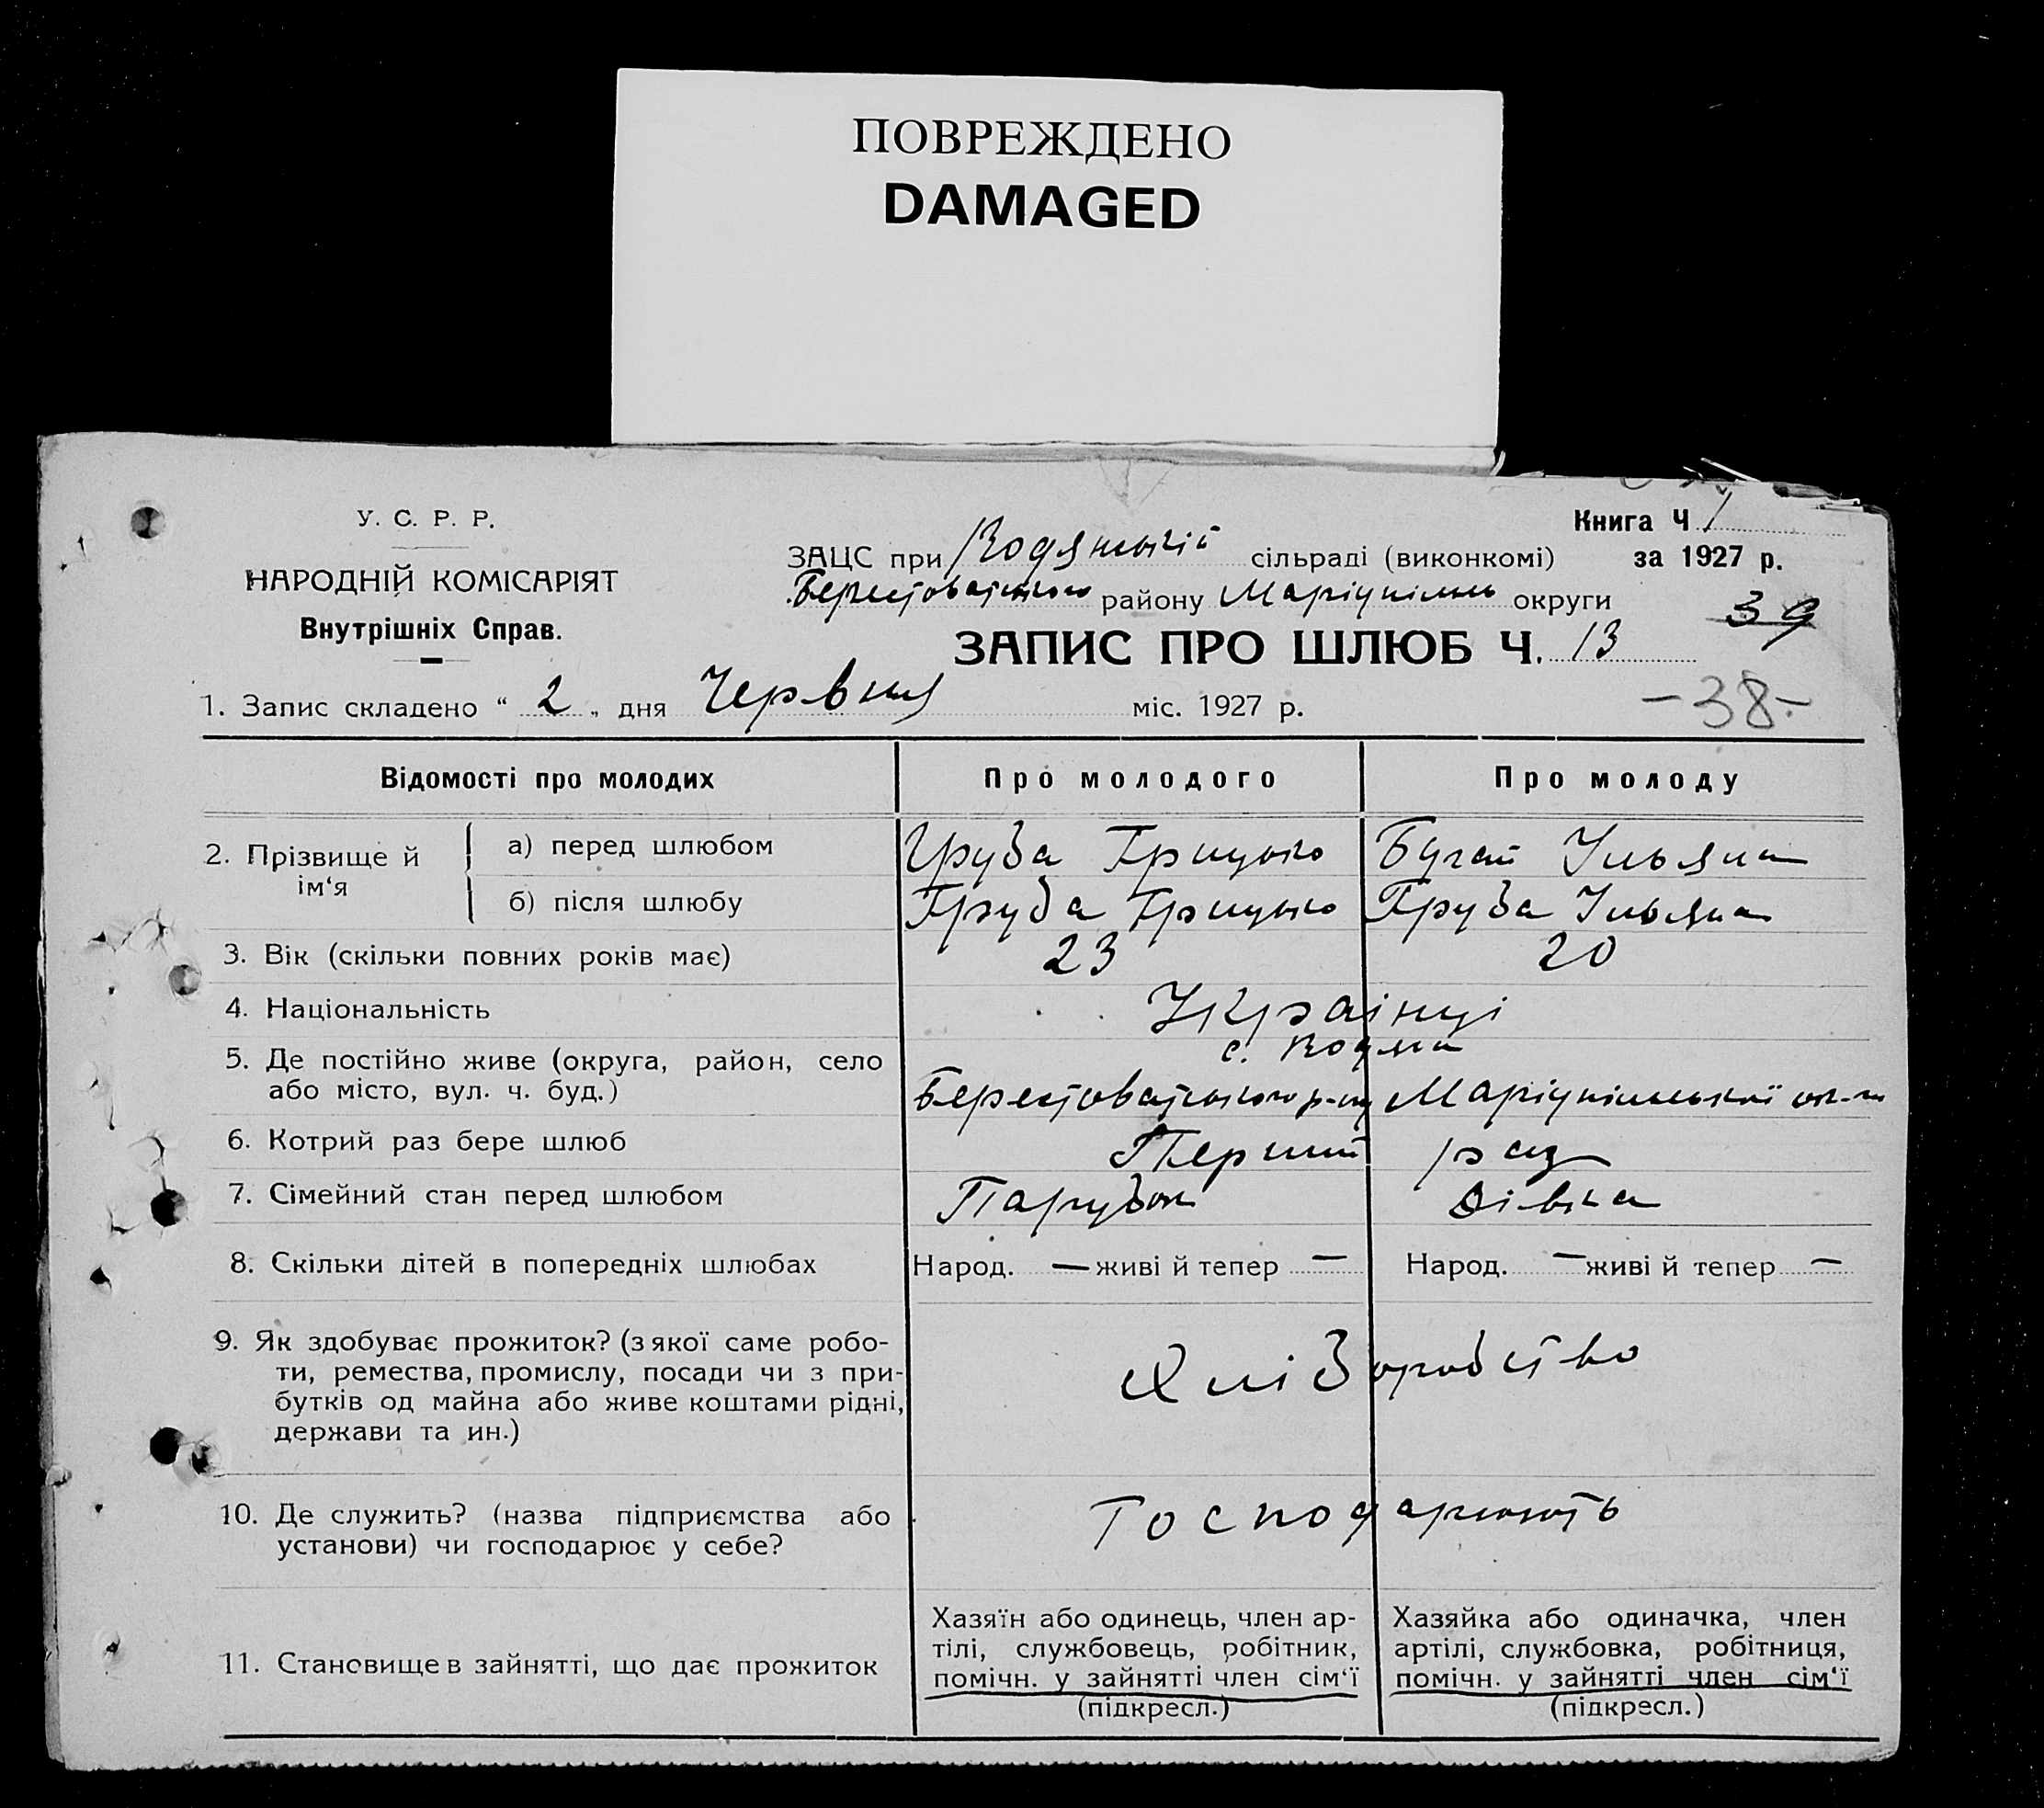 ПОВРЕЖДЕНО
DAMAGED
У. С. Р. Р.
НАРОДНІЙ КОМІСАРІЯТ
Внутрішніх Справ.
Книга Ч 1
ЗАЦС при Водянській сільраді (виконкомі) за 1927 р.
Берестоватського району Маріупільск округи
39
ЗАПИС ПРО ШЛЮБ Ч. 13
1. Запис складено “ 2 „ дня Червня міс. 1927 р.
-38-
Відомості про молодих Про молодого Про молоду
2. Прізвище й ім‘я а) перед шлюбом Груба Грицько Бугай Ульяна
б) після шлюбу Груба Грицько Груба Ульяна
3. Вік (скільки повних років має) 23 20
4. Національність Украінці
5. Де постійно живе (округа, район, село с. Водяна
або місто, вул. ч. буд.) Берестоватського р-ну Маріупільської ок-ги
6. Котрий раз бере шлюб Перший раз
7. Сімейний стан перед шлюбом Парубок Дівка
8. Скільки дітей в попередніх шлюбах Народ. — живі й тепер — Народ. — живі й тепер —
9. Як здобуває прожиток? (з якої саме робо-
ти, ремества, промислу, посади чи з при-
бутків од майна або живе коштами рідні,
держави та ин.)
Хліборобство
10. Де служить? (назва підприємства або
установи) чи господарює у себе?
Господарюють
11. Становище в зайнятті, що дає прожиток
Хазяїн або одинець, член ар-
тілі, службовець, робітник,
помічн. у зайнятті член сім‘ї
(підкресл.)
Хазяйка або одиначка, член
артілі, службовка, робітниця,
помічн. у зайнятті член сім‘ї
(підкресл.)